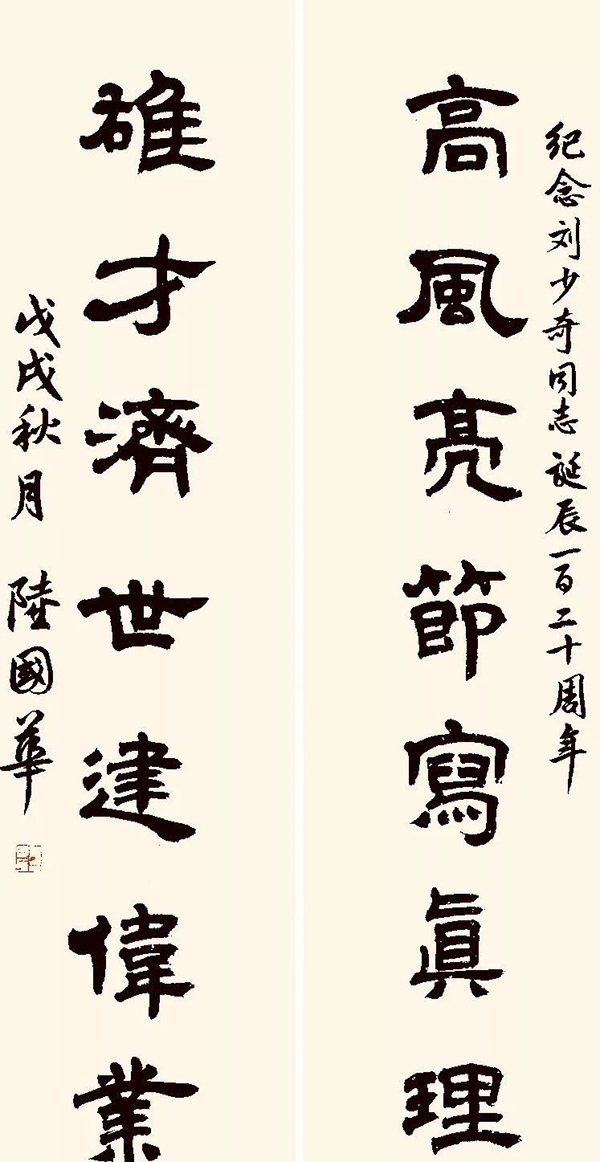 纪念刘少奇同志诞辰一百二十周年
高風亮節寫真理
雄才濟世建偉業
戊戌秋月 陸國華